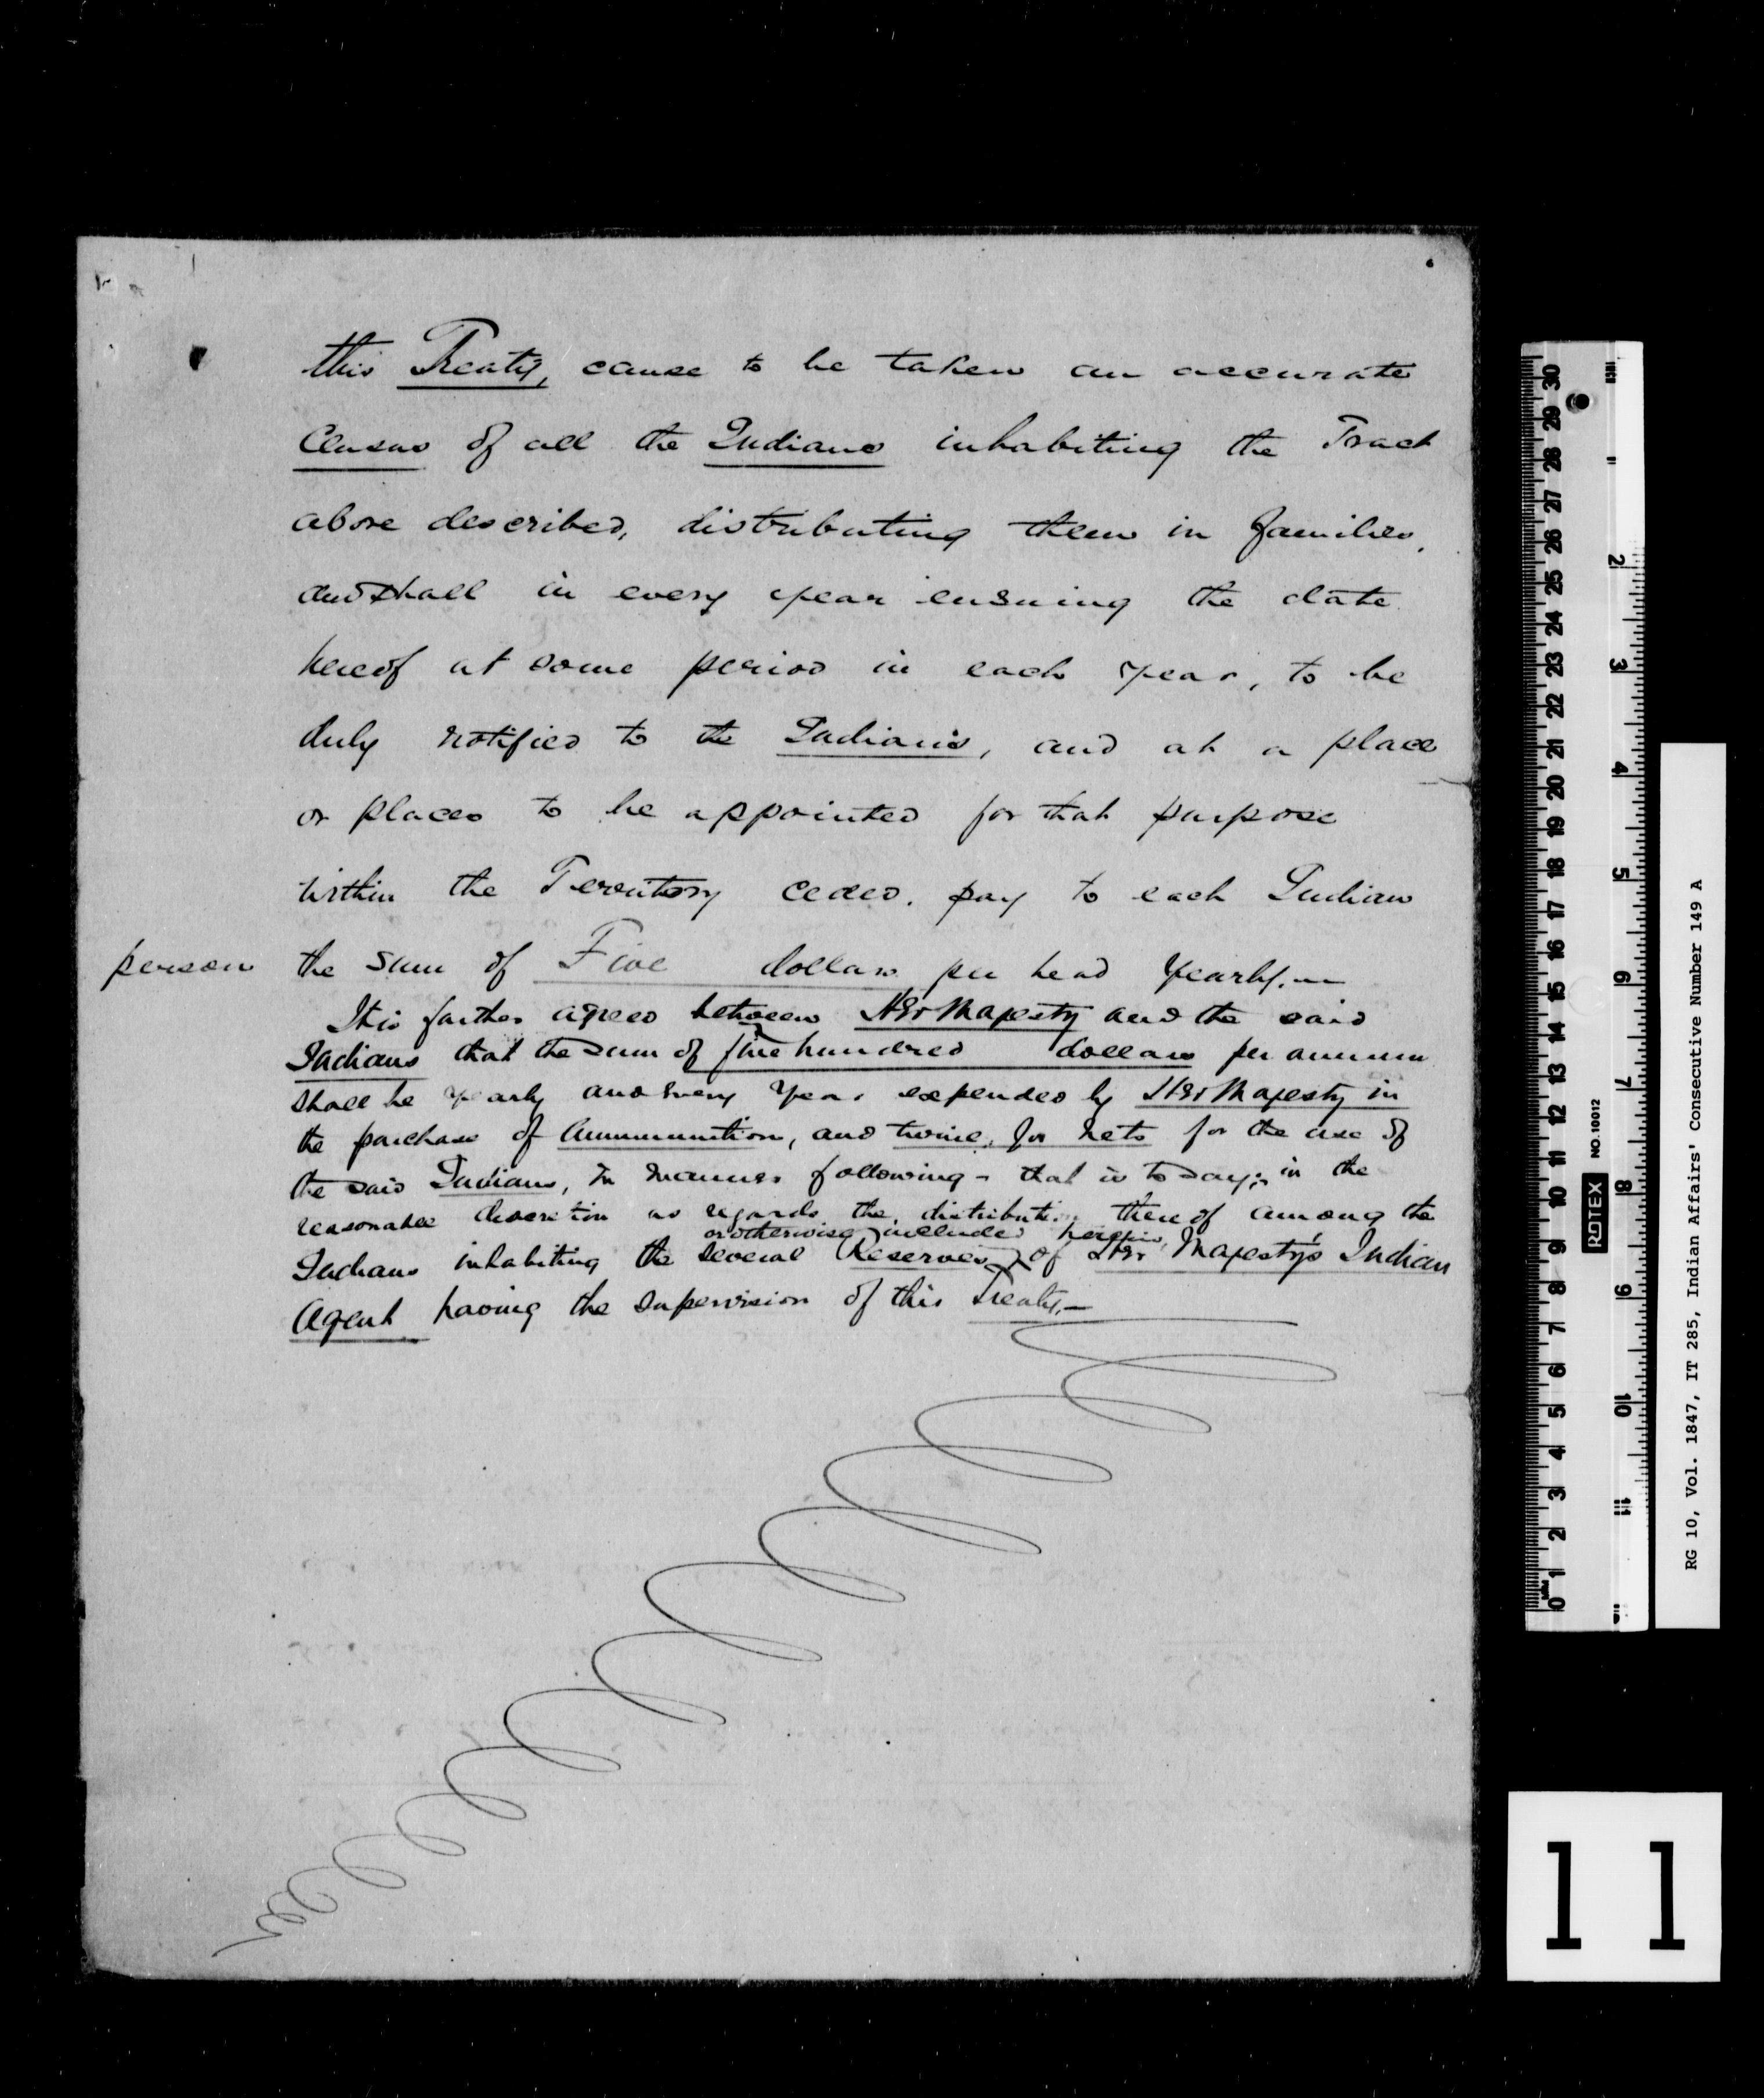 this Treaty, cause to be taken an accurate
Census of all the Indians inhabiting the Tract
above described, distributing them in families,
and shall in every year ensuing the date
hereof at some period in each year, to be
duly notified to the Indians, and at a place
or places to be appointed for that purpose
within the Territory ceded, pay to each Indian
person the sum of Five dollars per head yearly.
It is further agreed between Her Majesty and the said
Indians that the sum of five hundred dollars per annum
shall be yearly and every year expended by Her Majesty in
the purchase of Ammunition, and twine, for nets for the use of
the said Indians, in manner following - that is to say; in the
reasonable discretion as regards the distribution thereof among the
or otherwise included herein
Indians inhabiting the several Reserves of Her Majesty's Indian
Agent having the supervision of this Treaty.—
RG 10, Vol. 1847, IT 285, Indian Affairs' Consecutive Number 149 A
ROTEX NO.10012
30 29 28 27 26 25 24 23 22 21 20 19 18 17 16 15 14 13 12 11 10 9 8 7 6 5 4 3 2 1 0
2 3 4 5 6 7 8 9 10 11
11